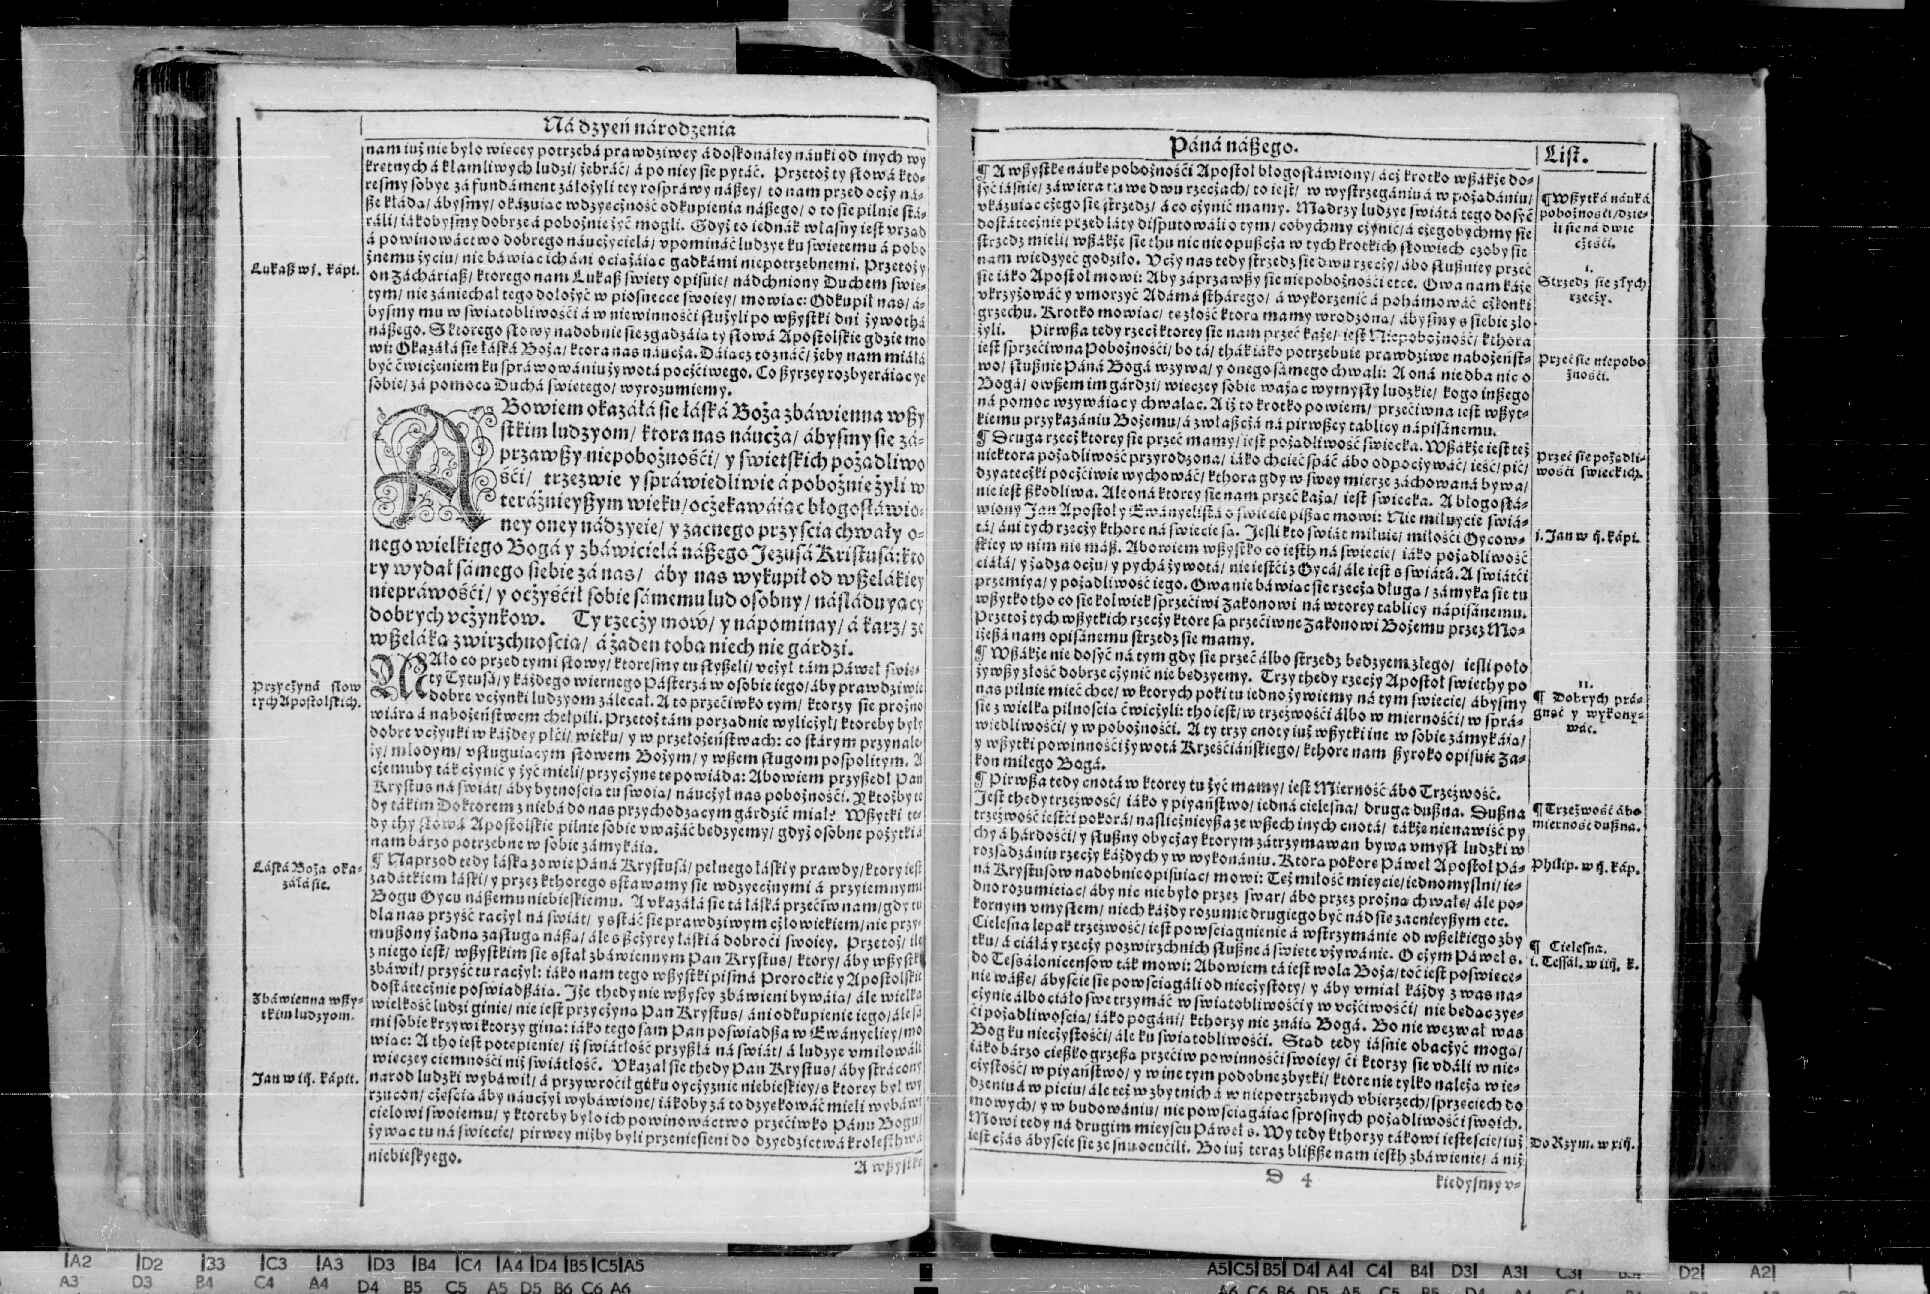 Ná dzyeń národzenia
nam iuż nie było wiecey potrzebá prawdziwey á doskonáłey náuki od inych wy
krętnych á kłamliwych ludzi/ żebráć/ á po niey sie pytáć. Przetoż ty słowá kto-
resmy sobye zá fundáment záłożyli tey rospráwy nászey/ to nam przed oczy ná-
sze kłádą/ ábysmy/ okázuiąc wdzyęczność odkupienia nászego/ o to sie pilnie stá-
ráli/ iákobysmy dobrze á pobożnie żyć mogli. Gdyż to iednák własny iest vrząd
á powinowáctwo dobrego náuczyciela/ vpomináć ludzye ku swiętemu á pobo
żnemu życiu/ nie báwiąc ich áni ociążáiąc gadkámi niepotrzebnemi. Przetoż y
on Zácháriasz/ ktorego nam Lukasz swięty opisuie/ nádchniony Duchem swię-
tym/ nie zániechał tego dołożyć w piosnecce swoiey/ mowiąc: Odkupił nas/ á-
bysmy mu w swiątobliwości á w niewinności służyli po wszystki dni żywothá
nászego. S ktorego słowy nadobnie sie zgadzáią ty słowá Apostolskie gdzie mo
wi: Okazáłá sie łáská Boża/ ktora nas náucza. Dáiącz to znáć/ żeby nam miáłá
być ćwiczeniem ku spráwowániu żywotá poczćiwego. Co szyrzey rozbyeráiąc ye
sobie/ zá pomocą Duchá swiętego/ wyrozumiemy.
Lukasz w j. kápi.
ABowiem okazáłá sie łáská Boża zbáwienna wszy
stkim ludzyom/ ktora nas náucza/ ábysmy sie zá-
przawszy niepobożnośći/ y swietskich pożądliwo
śći/ trzezwie y spráwiedliwie á pobożnie żyli w
teráźnieyszym wieku/ oczekawáiąc błogosłáwio-
ney oney nádzyeie/ y zacnego przyscia chwały o-
nego wielkiego Bogá y zbáwicielá nászego Jezusá Kristusá: kto
ry wydał sámego siebie zá nas/ áby nas wykupił od wszelákiey
niepráwośći/ y oczyśćił sobie sámemu lud osobny/ násláduyący
dobrych vczynkow. Ty rzeczy mow/ y nápominay/ á karz/ ze
wszeláką zwirzchnoscią/ á żaden tobą niech nie gárdzi.
MAło co przed tymi słowy/ ktoresmy tu słyszeli/ vczył tám Páweł swię-
ty Tytusá/ y káżdego wiernego Pásterzá w osobie iego/ áby prawdziwie
dobre vczynki ludzyom zálecał. A to przećiwko tym/ ktorzy sie prożno
wiárą á nabożeństwem chełpili. Przetoż tám porządnie wyliczył/ ktoreby były
dobre vczynki w káżdey płći/ wieku/ y w przełożeństwach: co stárym przynale-
ży/ młodym/ vsługuiącym słowem Bożym/ y wszem sługom pospolitym. A
czemuby ták czynić y żyć mieli/ przyczynę tę powiáda: Abowiem przyszedł Pan
Krystus ná swiát/ áby bytnoscią tu swoią/ náuczył nas pobożności. A ktożby te
dy tákim Doktorem z niebá do nas przychodzącym gárdzić miał? Wszytki te-
dy thy słowá Apostolskie pilnie sobie vważáć bedzyemy/ gdyż osobne pożytki á
nam bárzo potrzebne w sobie zámykáią.
Przyczyná słow
tych Apostolskich.
¶ Naprzod tedy łáską zowie Páná Krystusá/ pełnego łáski y prawdy/ ktory iest
zadatkiem łáski/ y przez kthorego sstawamy sie wdzyęcznymi á przyiemnymi
Bogu Oycu nászemu niebieskiemu. A vkazáłá sie tá łáská przećiw nam/ gdy tu
dla nas przyść raczył ná swiát/ y sstáć sie prawdziwym człowiekiem/ nie przy-
muszony żadną zasługą nászą/ ále s szczyrey łáski á dobroći swoiey. Przetoż/ ile
z niego iest/ wszystkim sie sstał zbáwiennym Pan Krystus/ ktory/ áby wszystki
zbáwił/ przyść tu raczył: iáko nam tego wszystki pismá Prorockie y Apostolskie
dostátecznie poswiadszáią. Jże thedy nie wszyscy zbáwieni bywáią/ ále wielka
wielkość ludzi ginie/ nie iest przyczyná Pan Krystus/ áni odkupienie iego/ ále są
mi sobie krzywi ktorzy giną: iáko tego sam Pan poswiadsza w Ewányeliey/ mo
wiąc: A tho iest potępienie/ iż swiátłość przyszłá ná swiát/ á ludzye vmiłowáli
więczey ciemnośći niż swiátłość. Vkazał sie thedy Pan Krystus/ áby strácony
narod ludzki wybáwił/ á przywroćił gi ku oyczyznie niebieskiey/ s ktorey był wy
rzucon/ częscią áby náuczył wybáwione/ iákoby zá to dzyękowáć mieli wybáwi
cielowi swoiemu/ y ktoreby było ich powinowáctwo przećiwko Pánu Bogu/
żywąc tu ná swiecie/ pirwey niżby byli przeniesieni do dzyedzictwá krolesthwá
niebieskyego.
A wszystkę
Láská Boża oka-
záłá sie.
Zbáwienna wszy-
tkim ludzyom.
Jan w iij. kápit.
Páná nászego.
List.
¶ A wszystkę náukę pobożnośći Apostoł błogosłáwiony/ ácz krotko wszákże do-
syć iásnie/ záwiera tu we dwu rzeczach/ to iest/ w wystrzegániu á w pożądániu/
vkázuiąc czego sie strzedz/ á co czynić mamy. Mądrzy ludzye swiátá tego dosyć
dostátecznie przed láty disputowáli o tym/ cobychmy czynić/ á czegobychmy sie
strzedz mieli/ wszákże sie thu nic nie opuszcza w tych krotkich słowiech czoby sie
nam wiedzyeć godziło. Vczy nas tedy strzedz sie dwu rzeczy/ ábo słuszniey przeć
sie iáko Apostoł mowi: Aby záprzawszy sie niepobożnośći etce. Owa nam káże
vkrzyżowáć y vmorzyć Adámá sthárego/ á wykorzenić á pohámowáć członki
grzechu. Krotko mowiąc/ tę złość ktorą mamy wrodzoną/ ábysmy s siebie zło
żyli. Pirwsza tedy rzecz ktorey sie nam przeć każe/ iest Niepobożność/ kthora
iest sprzećiwna Pobożnośći/ bo tá/ thák iáko potrzebuie prawdziwe nabożeńst-
wo/ słusznie Páná Bogá wzywa/ y onego sámego chwali: A oná nie dba nic o
Bogá/ owszem im gárdzi/ wieczey sobie ważąc wymysły ludzkie/ kogo inszego
ná pomoc wzywáiąc y chwaląc. A iż to krotko powiem/ przećiwna iest wszyt-
kiemu przykazániu Bożemu/ á zwłaszczá ná pirwszey tablicy nápisánemu.
¶ Druga rzecz ktorey sie przeć mamy/ iest pożądliwość swiecka. Wszákże iest też
niektora pożądliwość przyrodzona/ iáko chcieć spáć ábo odpoczywáć/ ieść/ pić/
dzyateczki poczćiwie wychowáć/ kthora gdy w swey mierze záchowána bywa/
nie iest szkodliwa. Ale oná ktorey sie nam przeć każą/ iest swiecka. A błogosłá-
wiony Jan Apostoł y Ewányelistá o swiecie pisząc mowi: Nie miłuycie swiá-
tá/ áni tych rzeczy kthore ná swiecie są. Jesli kto swiát miłuie/ miłośći Oycow-
skiey w nim nie mász. Abowiem wszystko co iesth ná swiecie/ iáko pożądliwość
ciáłá/ y żądza oczu/ y pychá żywotá/ nie iestći z Oycá/ ále iest s swiátá. A swiátći
przemiya/ y pożądliwość iego. Owa nie báwiąc sie rzeczą długą/ zámyka sie tu
wszytko tho co sie kolwiek sprzećiwi Zakonowi ná wtorey tablicy nápisánemu.
Przetoż tych wszytkich rzeczy ktore są przećiwne Zakonowi Bożemu przez Mo-
iżeszá nam opisánemu strzedz sie mamy.
¶ Wszákże nie dosyć ná tym gdy sie przeć álbo strzedz bedzyem złego/ iesli poło
żywszy złość dobrze czynić nie bedzyemy. Trzy thedy rzeczy Apostoł swięthy po
nas pilnie mieć chce/ w ktorych poki tu iedno żywiemy ná tym swiecie/ ábysmy
sie z wielką pilnoscią ćwiczyli: tho iest/ w trzeźwośći álbo w miernośći/ w sprá-
wiedliwośći/ y w pobożnośći. A ty trzy cnoty iuż wszytki ine w sobie zámykáią/
y wszytki powinnośći żywotá Krześćiáńskiego/ kthore nam szyroko opisuie Za-
kon miłego Bogá.
¶ Pirwsza tedy cnotá w ktorey tu żyć mamy/ iest Mierność ábo Trzeźwość.
Jest thedy trzeźwość/ iáko y piyáństwo/ iedná cielesna/ druga duszna. Duszna
trzeźwość iestći pokorá/ naslicznieysza ze wszech inych cnotá/ tákże nienawiść py
chy á hárdośći/ y słuszny obyczay ktorym zátrzymawan bywa vmysł ludzki w
rozsądzániu rzeczy káżdych y w wykonániu. Ktorą pokorę Páweł Apostoł Pá-
ná Krystusow nadobnie opisuiąc/ mowi: Też miłość mieycie/ iednomyslni/ ie-
dno rozumieiąc/ áby nic nie było przez swar/ ábo przez prożną chwałę/ ále po-
kornym vmysłem/ niech káżdy rozumie drugiego być nád sie zacnieyszym etc.
Cielesna lepak trzeźwość/ iest powsciągnienie á wstrzymánie od wszelkiego zby
tku/ á ciáłá y rzeczy pozwirzchnich słuszne á swięte vżywánie. O czym Páweł s.
do Tessáloniceńsow ták mowi: Abowiem tá iest wola Boża/ toć iest poswięce-
nie wásze/ ábyscie sie powsciągáli od nieczystoty/ y áby vmiał káżdy z was na-
czynie álbo ciáło swe trzymáć w swiątobliwośći y w vczćiwośći/ nie będąc zye-
ći pożądliwoscią/ iáko pogáni/ kthorzy nie znáią Bogá. Bo nie wezwał was
Bog ku nieczystośći/ ále ku swiątobliwośći. Stąd tedy iásnie obaczyć mogą/
iáko bárzo cieszko grzeszą przećiw powinnośći swoiey/ ći ktorzy sie vdáli w nie-
czystość/ w piyáństwo/ y w ine tym podobne zbytki/ ktore nie tylko należą w ie-
dzeniu á w piciu/ ále też w zbytnich á w niepotrzebnych vbierzech/ sprzęciech do
mowych/ y w budowániu/ nie powsciągáiąc sprosnych pożądliwośći swoich.
Mowi tedy ná drugim mieyscu Páweł s. Wy tedy kthorzy tákowi iestescie/ iuż
iest czás ábyscie sie ze snu ocućili. Bo iuż teraz bliższe nam iesth zbáwienie/ á niż
D 4
kiedysmy v-
¶ Wszytká náuká
pobożnośći/ dzie-
li sie ná dwie
częśći.
i.
Strzedz sie złych
rzeczy.
Przeć sie niepobo
żnośći.
Przeć sie pożądli-
wośći swieckich.
j. Jan w ij. kápi.
II.
¶ Dobrych prá-
gnąć y wykony-
wáć.
¶ Trzeźwość ábo
mierność duszna.
Philip. w ij. káp.
¶ Cielesna.
i. Tessál. w iiij. k.
Do Rzym. w xiij.
A2 D2 33 C3 A3 D3 B4 C4 A4 D4 B5 C5 A5
A3 D3 B4 C4 A4 D4 B5 C5 A5 D5 B6 C6 A6
A5 C5 B5 D4 A4 C4 B4 D3 A3 C3 B3 D2 A2
A6 C6 B6 D5 A5 C5 B5 D4 A4 C4